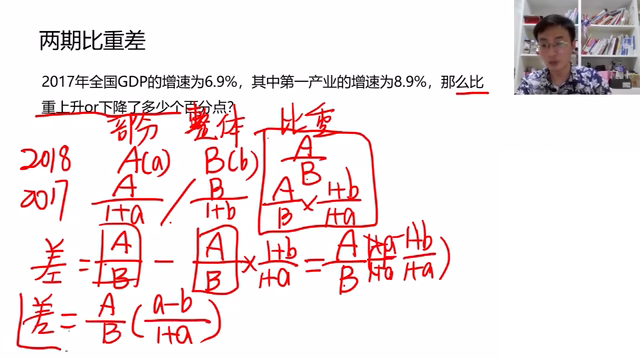 两期比重差
2017年全国GDP的增速为6.9%，其中第一产业的增速为8.9%，那么比
重上升or下降了多少个百分点？
部分 整体 比重
2018 A(a) B(b) A/B
2017 A/1+a / B/1+b A/B × 1+b/1+a
差 = A/B - A/B × 1+b/1+a = A/B ( 1+a/1+a - 1+b/1+a )
差 = A/B ( a-b/1+a )